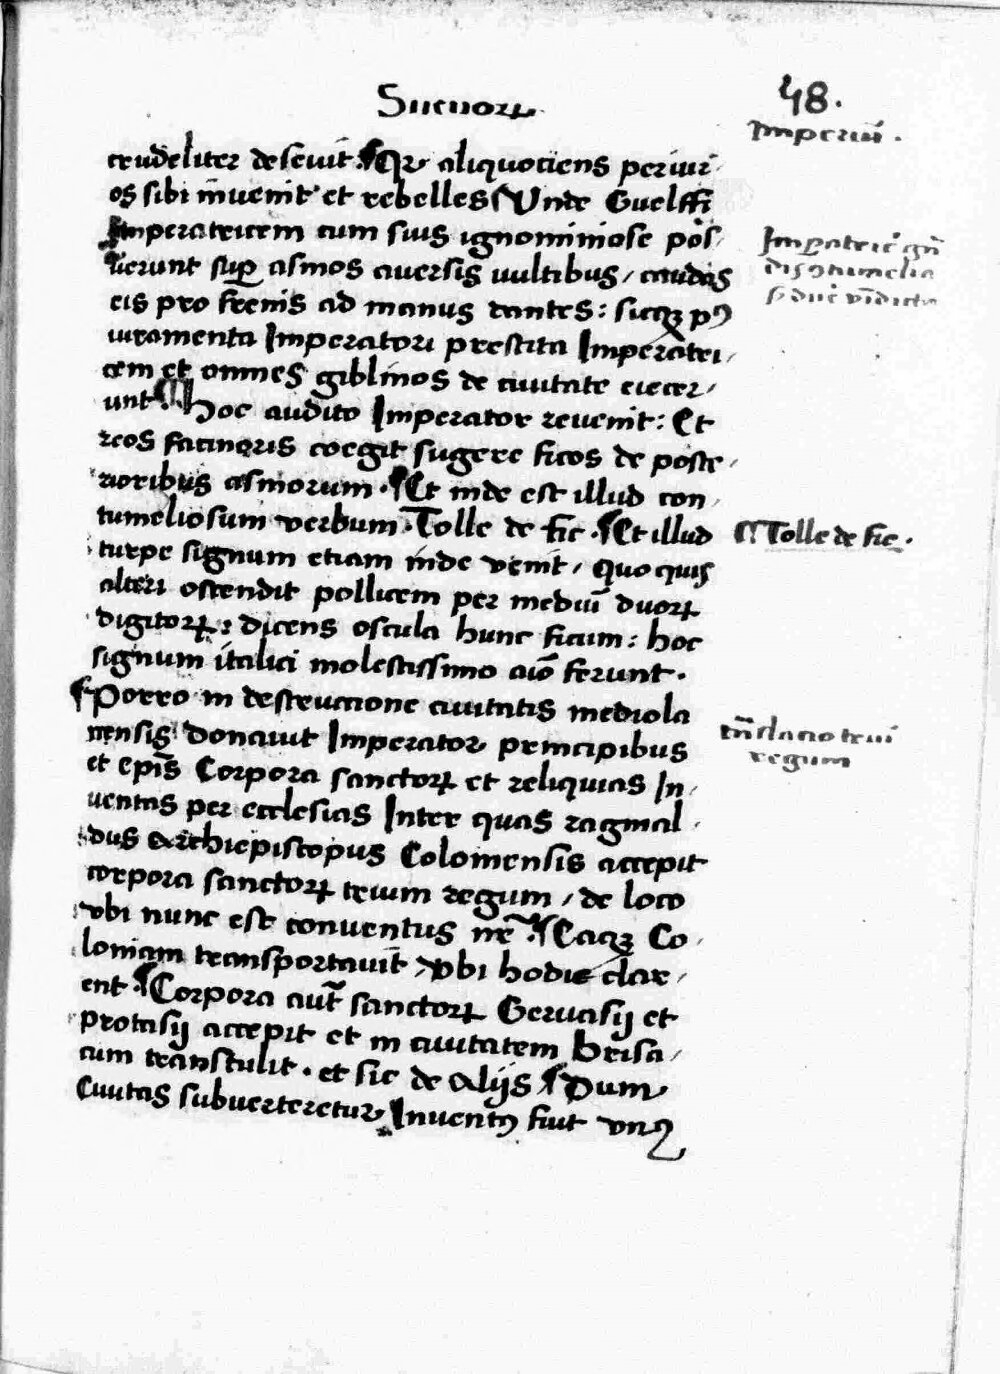 Sueuorꝝ
48.
Imperiū.
crudeliter deseuit ¶ Qr aliquociens periuri
os sibi īuenit et rebelles ¶ Unde Guelffi
Imperatricem cum suis ignominiose pos/
uerunt suꝑ asinos auersis uultibus / caudas
Imꝑatrici gͣ
dis ꝯtumelia
eis pro frenis ad manus dantes: sicqꝫ pꝰ
iuramenta Imperatori prestita Imperatri/
cem et omnes giblinos de ciuitate eiecer/
unt. ¶ Hoc audito Imperator reuenit: Et
reos facinoris coegit sugere ficos de poste/
rioribus asinorum. ¶ Et inde est illud con/
tumeliosum verbum. Tolle de fic. ¶ Et illud
¶ Tolle de fic.
turpe signum etiam inde venit / quo quis
alteri ostendit pollicem per mediū duorꝝ
digitorꝝ: dicens oscula hunc ficum: hoc
signum italici molestissimo aīo ferunt.
¶ Porro in destruccione ciuitatis mediola
nensis donauit Imperator principibus
trāslacio triū
regum
et epīs Corpora sanctorꝝ et reliquias In/
uentas per ecclesias Inter quas raginal/
dus Archiepiscopus Coloniensis accepit
corpora sanctorꝝ trium regum / de loco
vbi nunc est conuentus nr̄ ¶ Eaqꝫ Co/
loniam transportauit / vbi hodie clar/
ent. ¶ Corpora aut̄ sanctorꝝ Geruasij et
protasij accepit et in ciuitatem Brisa/
cum transtulit. et sic de alijs ¶ Dum
Ciuitas subuerteretur Inuentꝰ fuit vnꝰ